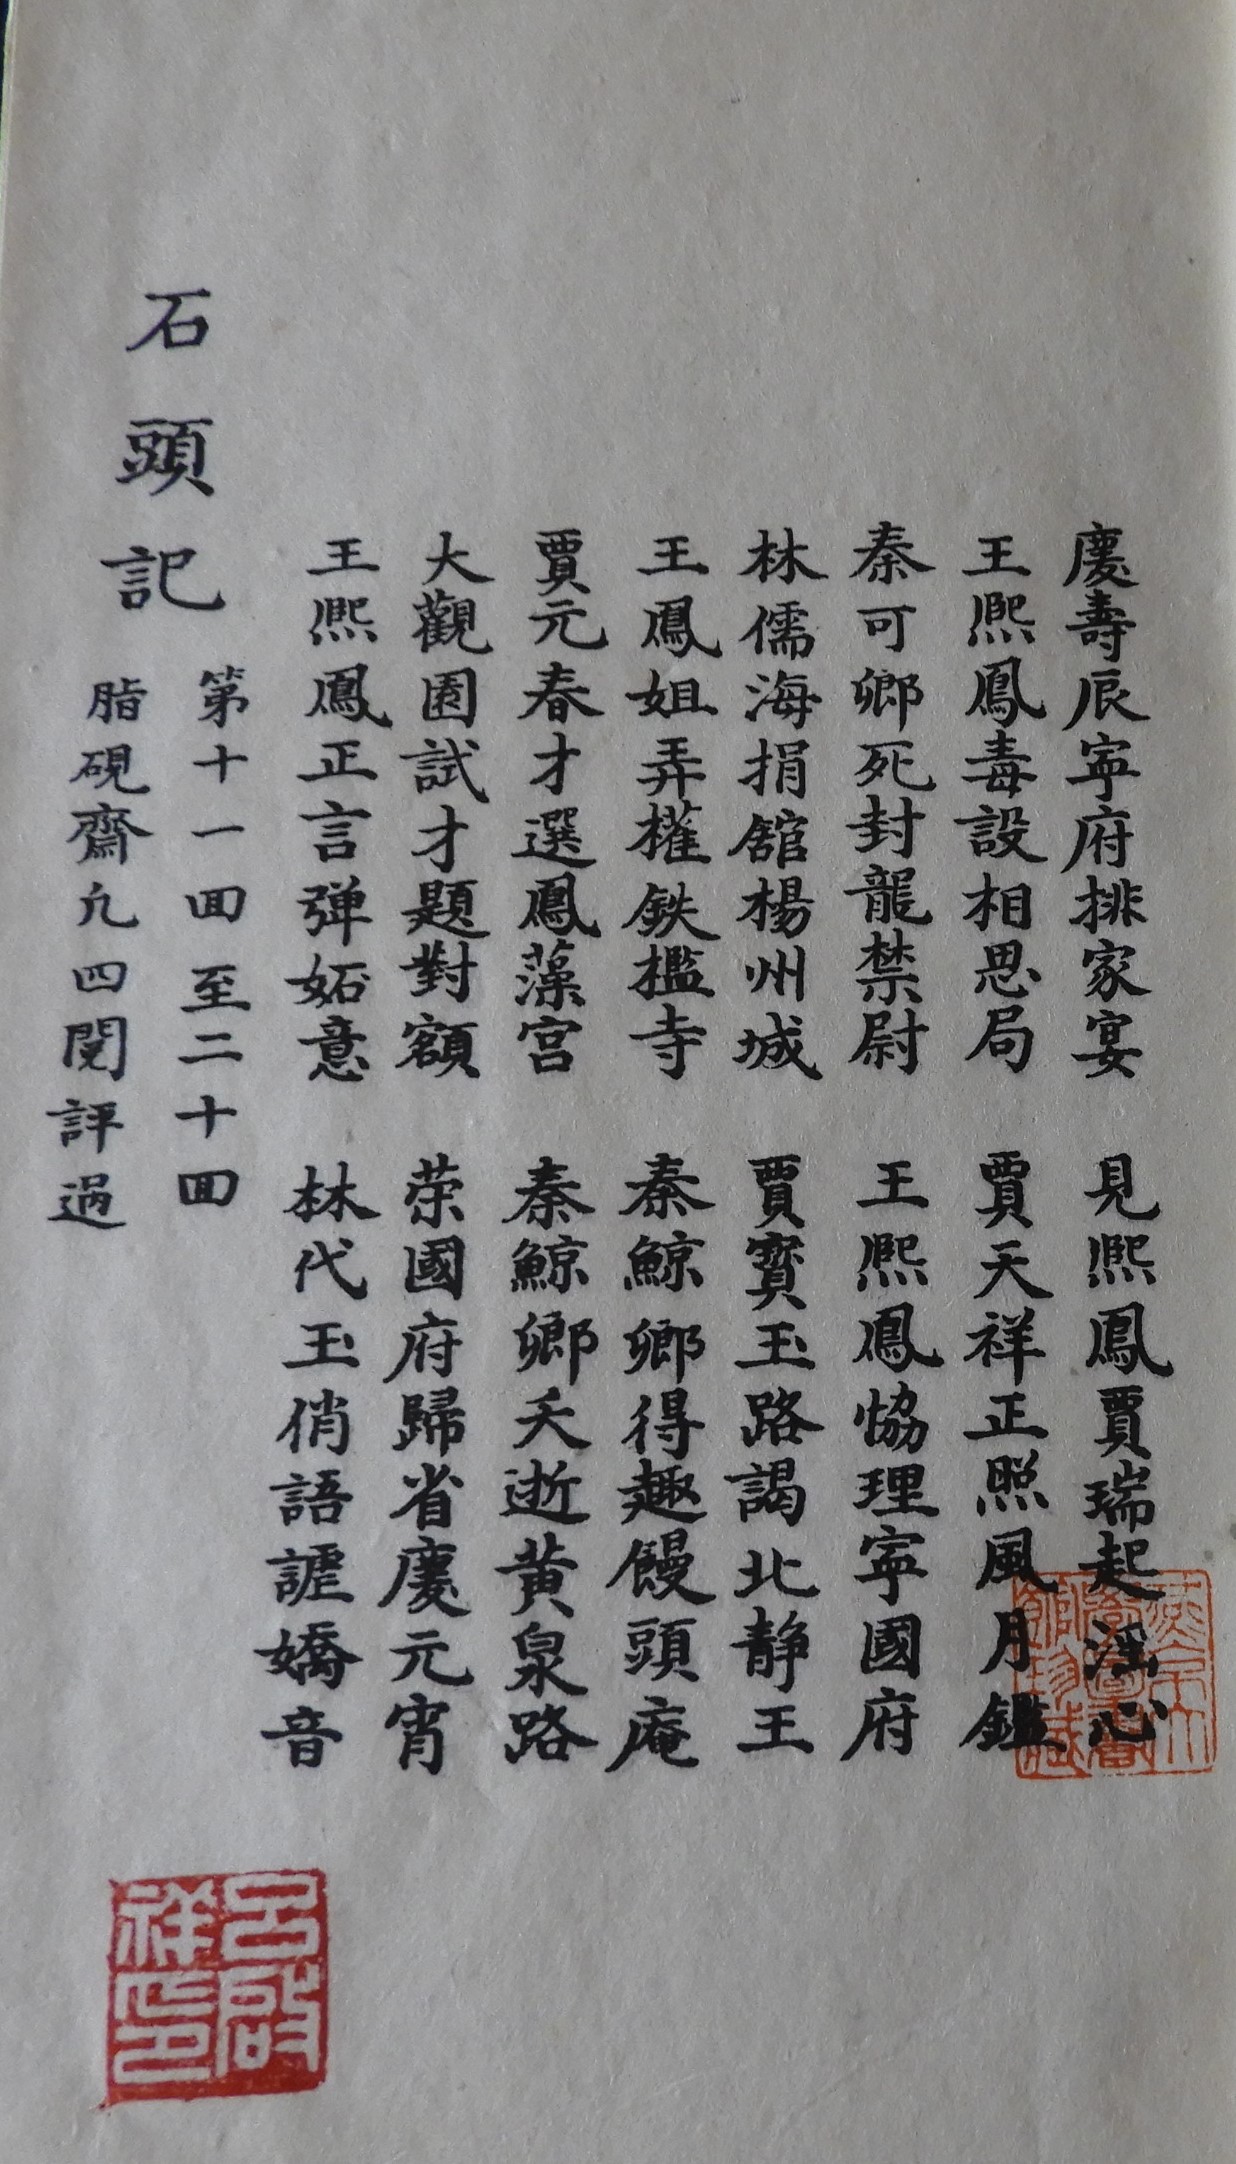 慶壽辰寕府排家宴　見熈鳳賈瑞起滛心
王熈鳳毒設相思局　賈天祥正照風月鑑
秦可卿死封龍禁尉　王熈鳳恊理寕國府
林儒海捐舘楊州城　賈寳玉路謁北静王
王鳳姐弄權鉄檻寺　秦鯨卿得趣饅頭庵
賈元春才選鳳藻宫　秦鯨卿夭逝黄泉路
大觀園試才題對額　荣國府歸省慶元宵
王熈鳳正言弹妬意　林代玉俏語謔嬌音
石頭記
第十一回至二十回
脂硯齋凢四閱評過
吕啟祥印